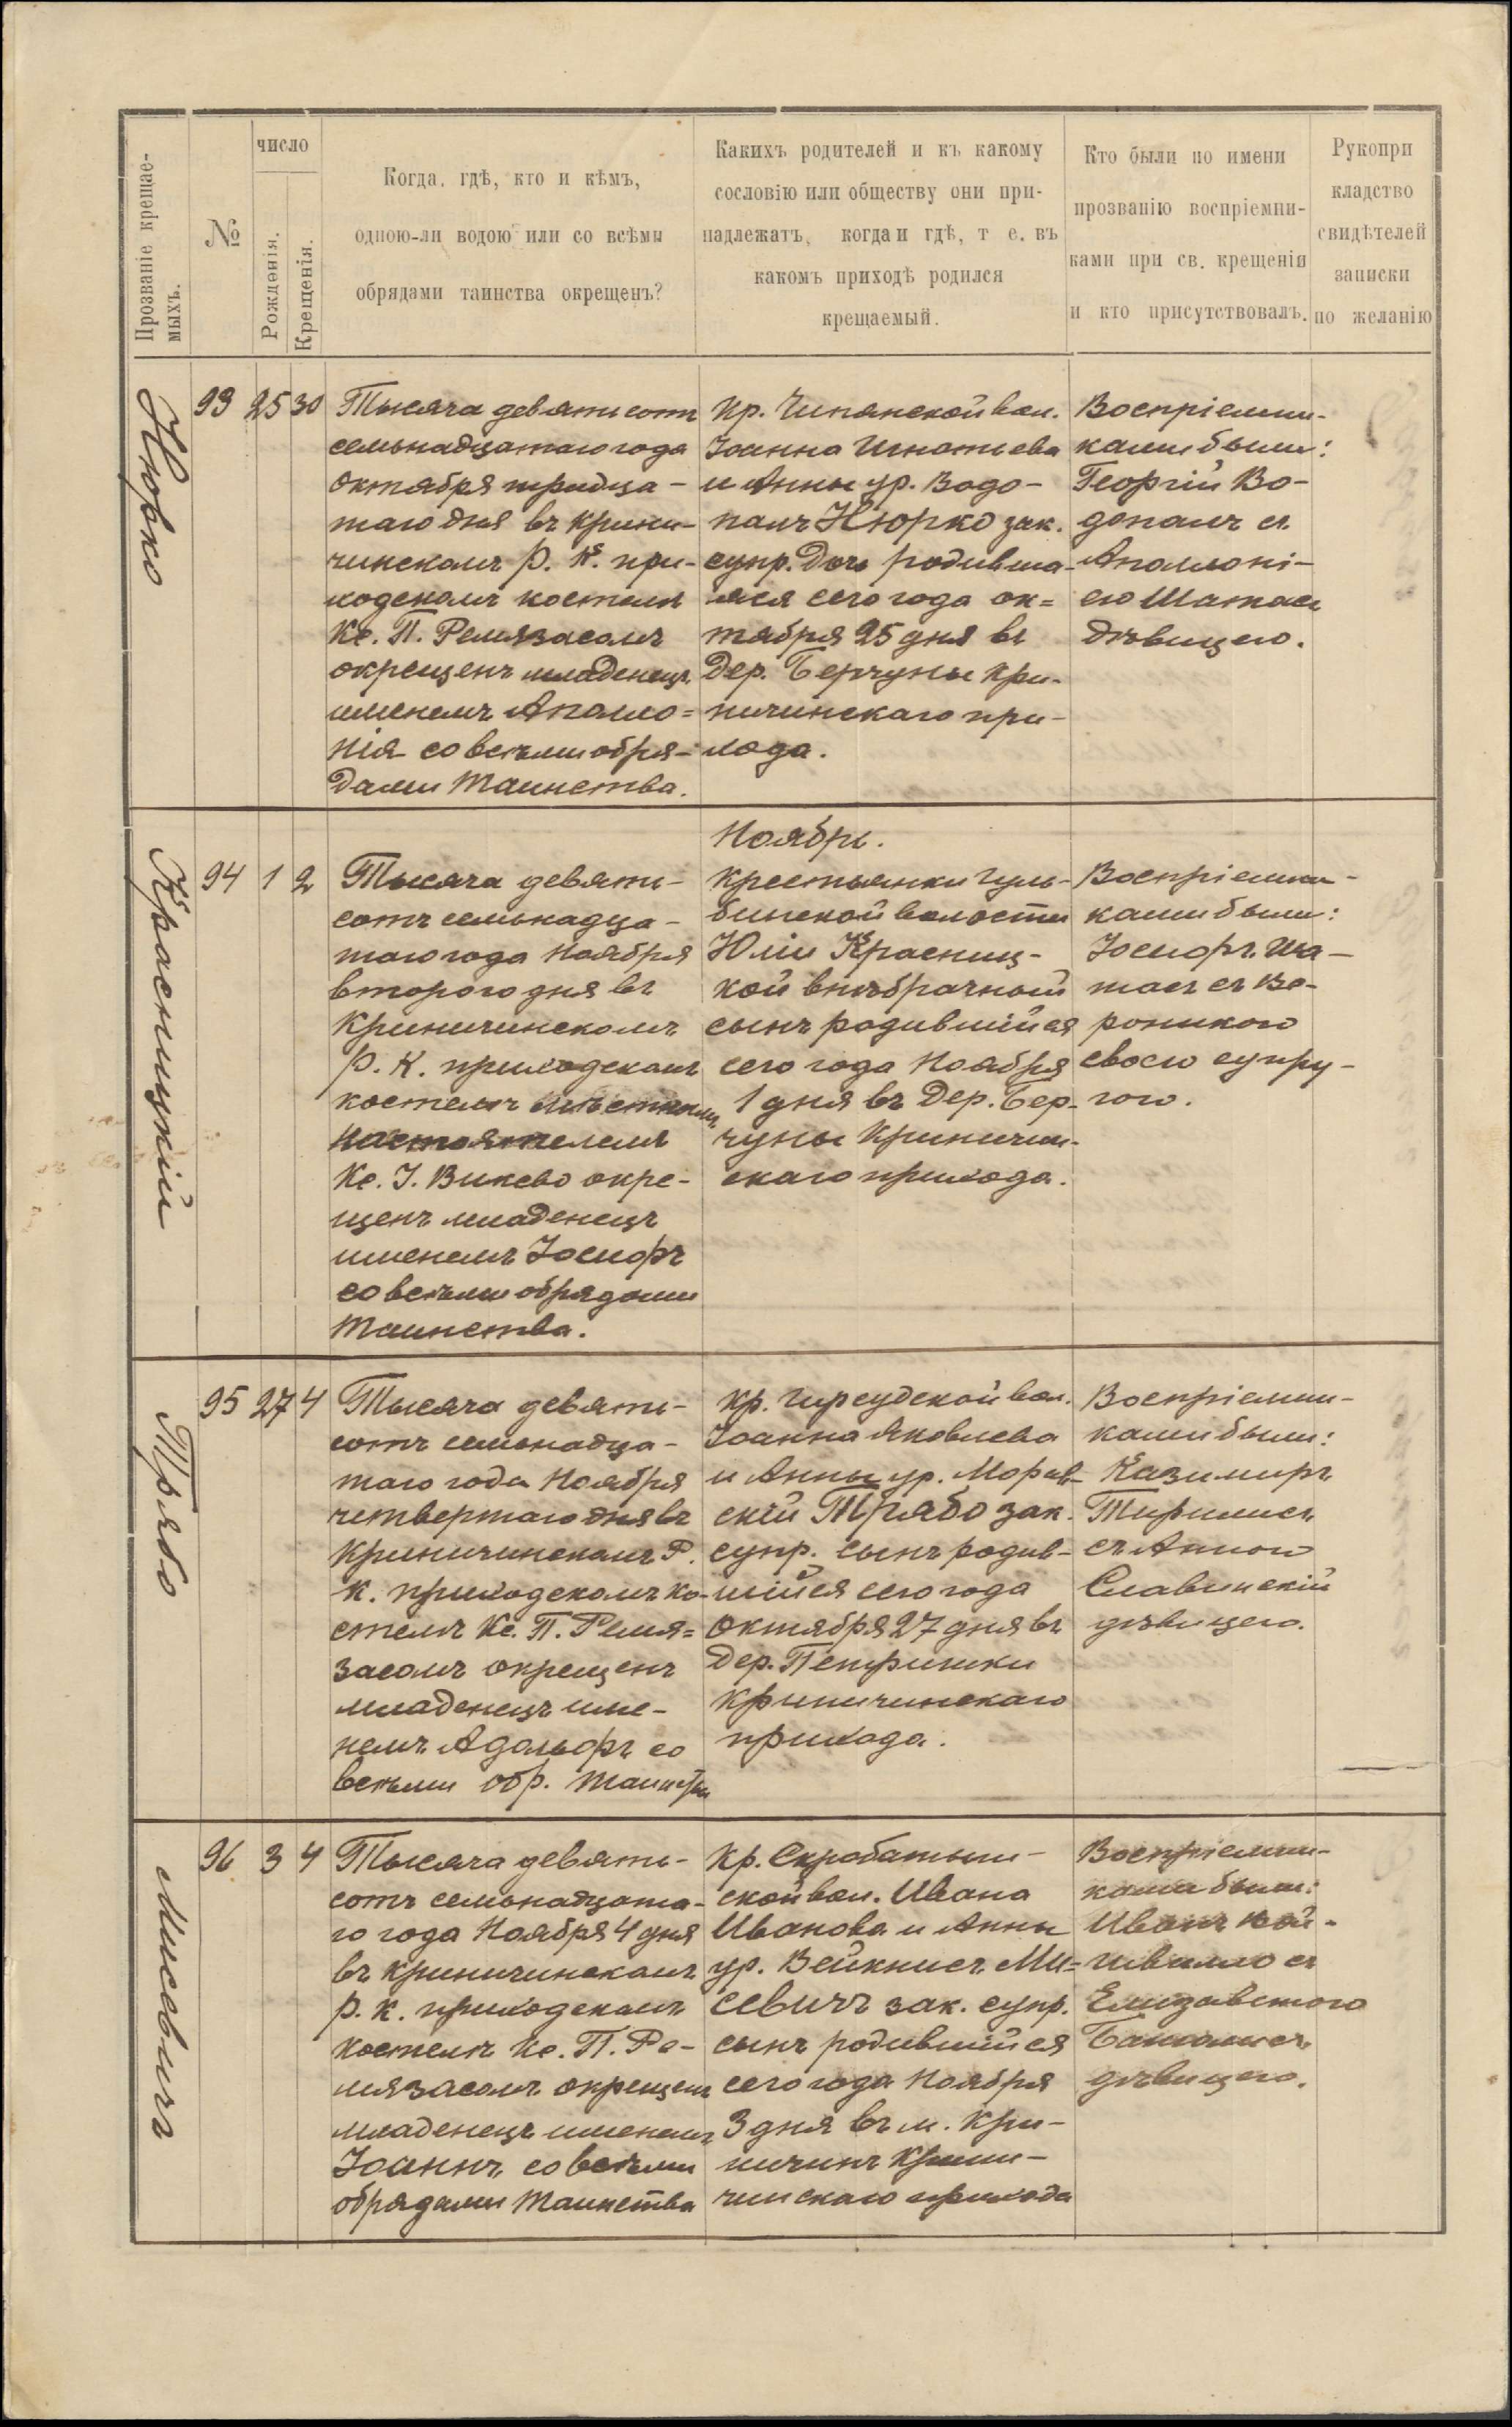 Прозваніе крещае-
мыхъ.
№
число
Рожденія.
Крещенія.
Когда, гдѣ, кто и кѣмъ,
одною-ли водою или со всѣми
обрядами таинства окрещенъ?
Какихъ родителей и къ какому
сословію или обществу они при-
надлежатъ, когда и гдѣ, т е. въ
какомъ приходѣ родился
крещаемый.
Кто были по имени
прозванію воспріемни-
ками при св. крещеніи
и кто присутствовалъ.
Рукопри
кладство
свидѣтелей
записки
по желанію
Нюрко
93 25 30
Тысяча девятьсотъ
семьнадцатаго года
Октября тридца-
таго дня въ Крини-
чинскомъ Р. К. при-
ходскомъ костелѣ
Кс. П. Ремязасомъ
окрещенъ младенецъ
именемъ Аполло=
нія со всѣми обря-
дами Таинства.
Кр. Чипянской вол.
Іоанна Игнатьева
и Анны ур. Водо-
палъ Нюрко зак.
супр. дочь родивша-
яся сего года ок=
тября 25 дня въ
дер. Берчуны Кри-
ничинскаго при-
хода.
Воспріемни-
ками были:
Георгій Во-
допалъ съ
Аполлоні-
ею Шатасъ
дѣвицею.
Красницкій
94 1 2
Тысяча девять-
сотъ семьнадца-
таго года Ноября
второго дня въ
Криничинскомъ
Р. К. приходскомъ
костелѣ мѣстнымъ
Настоятелемъ
Кс. І. Виксво окре-
щенъ младенецъ
именемъ Іосифъ
со всѣми обрядами
Таинства.
Ноябрь.
Крестьянки Гуль-
бинской волости
Юліи Красниц-
кой внѣбрачный
сынъ родившійся
сего года Ноября
1 дня въ дер. Бер-
чуны Криничин-
скаго прихода.
Воспріемни-
ками были:
Іосифъ Ша-
тасъ съ Ве-
роникою
своею супру-
гою.
Трябо
95 27 4
Тысяча девять-
сотъ семьнадца-
таго года Ноября
четвертаго дня въ
Криничинскомъ Р.
К. приходскомъ ко-
стелѣ Кс. П. Ремя=
засомъ окрещенъ
младенецъ име-
немъ Адольфъ со
всѣми обр. Таинства
Кр. Гирсудской вол.
Іоанна Яковлева
и Анны ур.Морав-
скій Трябо зак.
супр. сынъ родив-
шійся сего года
Октября 27 дня въ
дер. Петришки
Криничинскаго
прихода.
Воспріемни-
ками были:
Казимиръ
съ Анною
Славинскій
дѣвицею.
Мисевичъ
96 3 4
Тысяча девять-
сотъ семьнадцата-
го года Ноября 4 дня
въ Криничинскомъ
Р. К. приходскомъ
костелѣ Кс. П. Ре-
мязасомъ окрещенъ
младенецъ именемъ
Іоаннъ со всѣми
обрядами Таинства
Кр. Скробатыш-
ской вол. Ивана
Иванова и Анны
ур. Вейкнисъ Ми=
севичъ зак. супр.
сынъ родившійся
сего года Ноября
3 дня въ м. Кри-
ничинъ Крини-
чинскаго прихода
Воспріемни-
ками были:
Иванъ
съ
Елизаветою
дѣвицею.